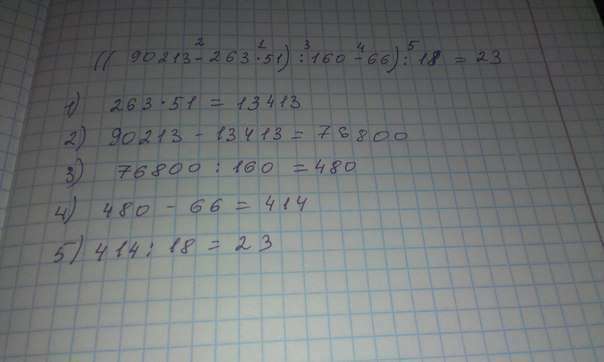 ((90213 - 263 · 51) : 160 - 66) : 18 = 23
1) 263 · 51 = 13413
2) 90213 - 13413 = 76800
3) 76800 : 160 = 480
4) 480 - 66 = 414
5) 414 : 18 = 23